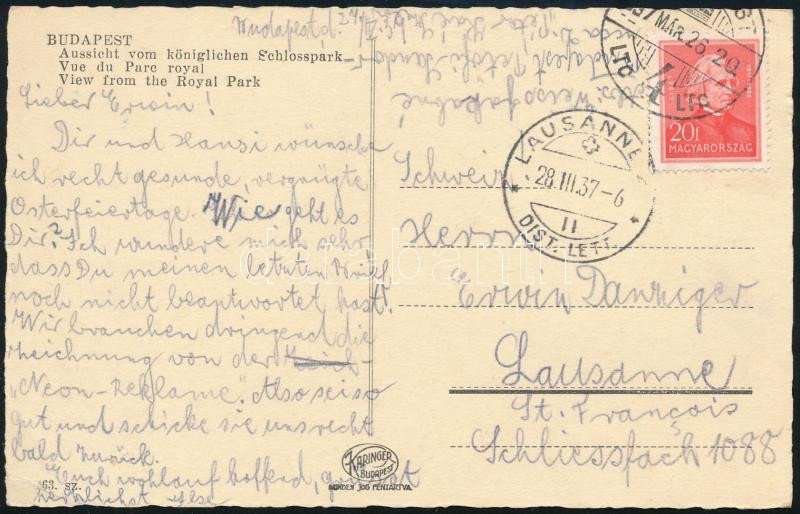 BUDAPEST
Aussicht vom königlichen Schlosspark
Vue du Parc royal
View from the Royal Park
Budapest, d.
Lieber Erwin!
Dir und Hansi wünsche
ich recht gesunde, vergnügte
Osterfeiertage. Wie geht es
Dir? Ich wundere mich sehr
dass Du meinen letzten Brief
noch nicht beantwortet hast!
Wir brauchen dringend die
Zeichnung von der
"Neon-Reklame". Also sei so
gut und schicke sie uns recht
bald zurück.
Euch wohlauf hoffend, grüsst
herzlichst Ilse
63. sz.
KARINGER
BUDAPEST
MINDEN JOG FENTARTVA.
Budapest Petőfi Sándor
37 MÁR. 26. 20
LTC
LTC
20f
MAGYARORSZÁG
LAUSANNE
28.III.37-6
II
DIST. LETT.
Schweiz
Herrn
Erwin Danziger
Lausanne
St. François
Schliessfach 1088
darabanth